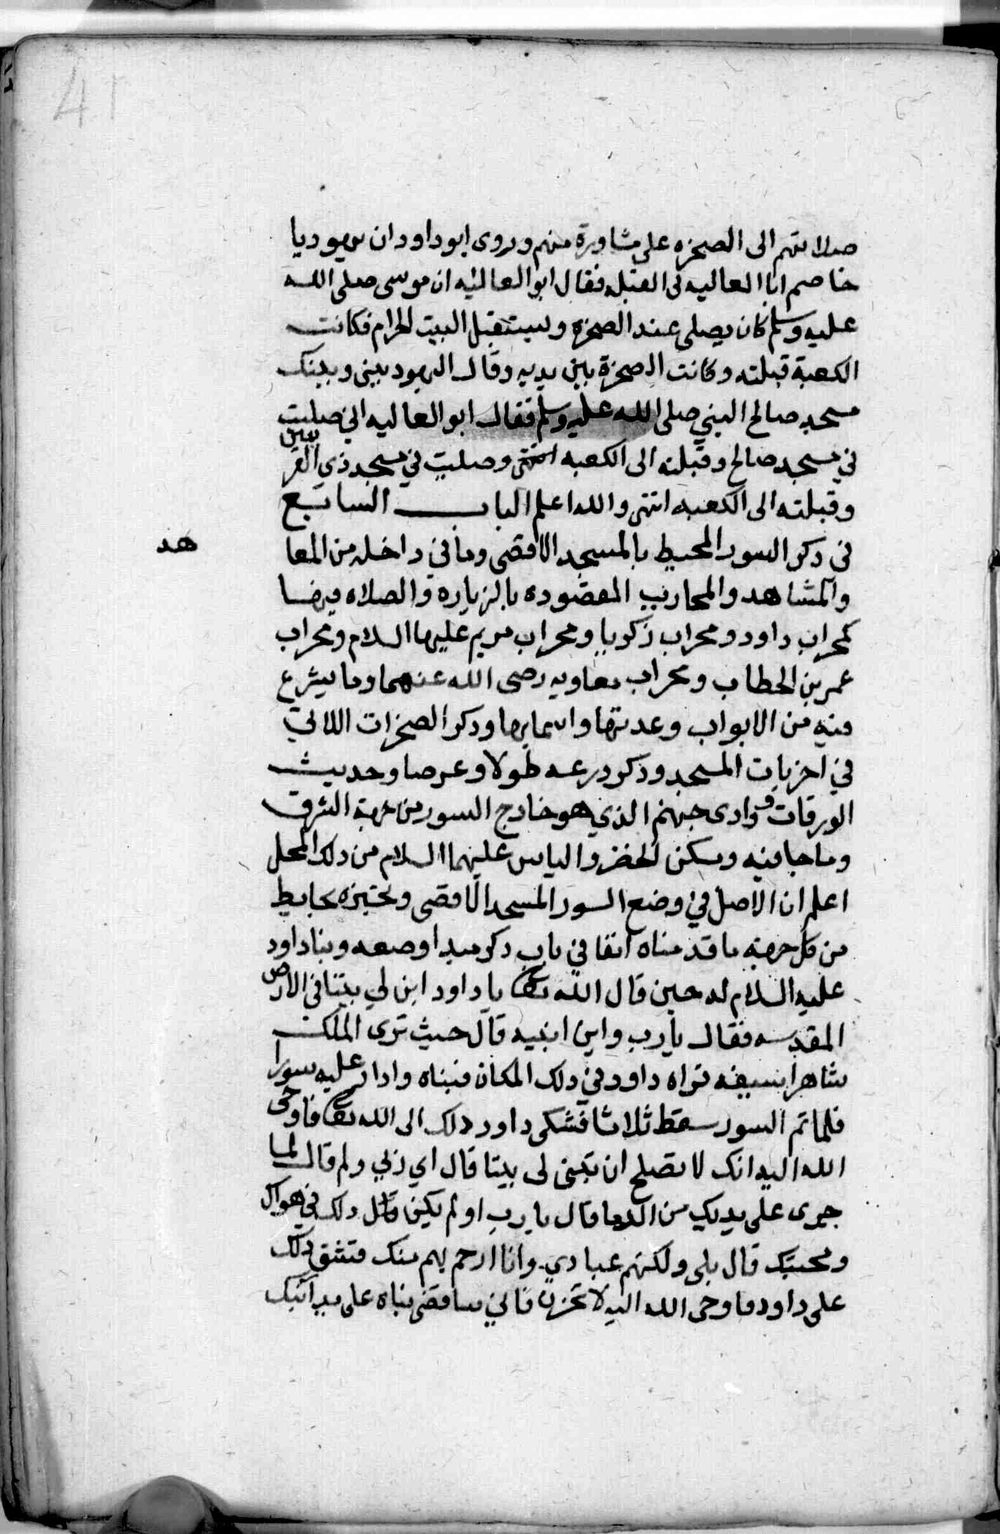 41
صلاتهم الى الصخره على مشاورة منهم وروى ابو داود ان يهوديا
خاصم ابا العاليه في القبله فقال ابو العاليه ان موسى صلى الله
عليه وسلم كان يصلي عند الصخره ويستقبل البيت الحرام فكانت
الكعبة قبلته وكانت الصخرة بين يديه وقال اليهود بيني وبينك
مسجد صالح النبي صلى الله عليه وسلم فقال ابو العاليه اني صليت
في مسجد صالح وقبلته الى الكعبه انتهى وصليت في مسجد ذي القرنين
وقبلته الى الكعبه انتهى والله اعلم الباب السابع
في ذكر السور المحيط بالمسجد الاقصى وما في داخله من المعا
هد
والمشاهد والمحاريب المقصوده بالزياره والصلاه فيها
كمحراب داود ومحراب زكريا ومحراب مريم عليها السلام ومحراب
عمر بن الخطاب ومحراب معاويه رضى الله عنهما وما يشرع
فيه من الابواب وعدتها واسمايها وذكر الصخرات اللاتي
في اخريات المسجد وذكر درعه طولا وعرضا وحديث
الورقات ووادى جهنم الذي هو خارج السور من جهة الشرق
وما جا فيه ومسكن الخضر والياس عليهما السلام من ذلك المحل
اعلم ان الاصل في وضع السور المسجد الاقصى وتحيزه بحايط
من كل جهة ما قدمناه انفا في باب ذكر مبدا وضعه وبنا داود
عليه السلام له حين قال الله تعا يا داود ابن لي بيتا في الارض
المقدسه فقال يا رب واين ابنيه قال حيث ترى الملك
شاهرا سيفه فراه داود في ذلك المكان فبناه وادار عليه سورا
فلما تم السور سقط ثلاثا فشكى داود ذلك الى الله تعا فاوحى
الله اليه انك لا تصلح ان تبنى لى بيتا قال اي رب ولم قال لما
جرى على يديك من الدما قال يا رب اولم يكن ذلك في هواك
ومحبتك قال بلى ولكنهم عبادي وانا ارحم بهم منك فشق ذلك
على داود فاوحى الله اليه لا تحزن فاني ساقضي بناه على يد ابنك